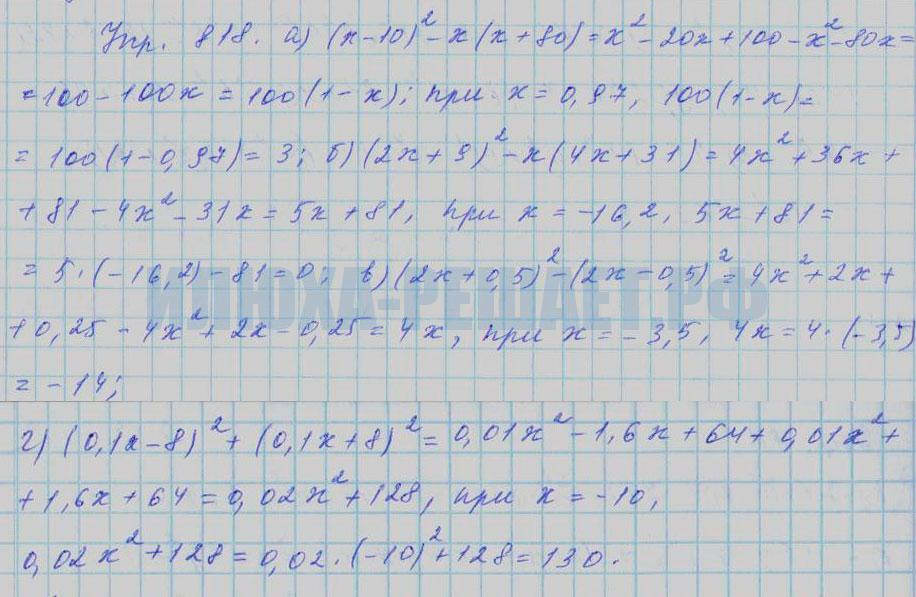 Упр. 818. а) (x-10)² - x(x+80) = x² - 20x + 100 - x² - 80x =
= 100 - 100x = 100(1-x); при x = 0,97, 100(1-x) =
= 100(1-0,97) = 3; б) (2x+9)² - x(4x+31) = 4x² + 36x +
+ 81 - 4x² - 31x = 5x + 81, при x = -16,2, 5x + 81 =
= 5·(-16,2) - 81 = 0; в) (2x+0,5)² - (2x-0,5)² = 4x² + 2x +
ИЛЮХА-РЕШАЕТ.РФ
+ 0,25 - 4x² + 2x - 0,25 = 4x, при x = -3,5, 4x = 4·(-3,5)
= -14;
г) (0,1x-8)² + (0,1x+8)² = 0,01x² - 1,6x + 64 + 0,01x² +
+ 1,6x + 64 = 0,02x² + 128, при x = -10,
0,02x² + 128 = 0,02·(-10)² + 128 = 130.